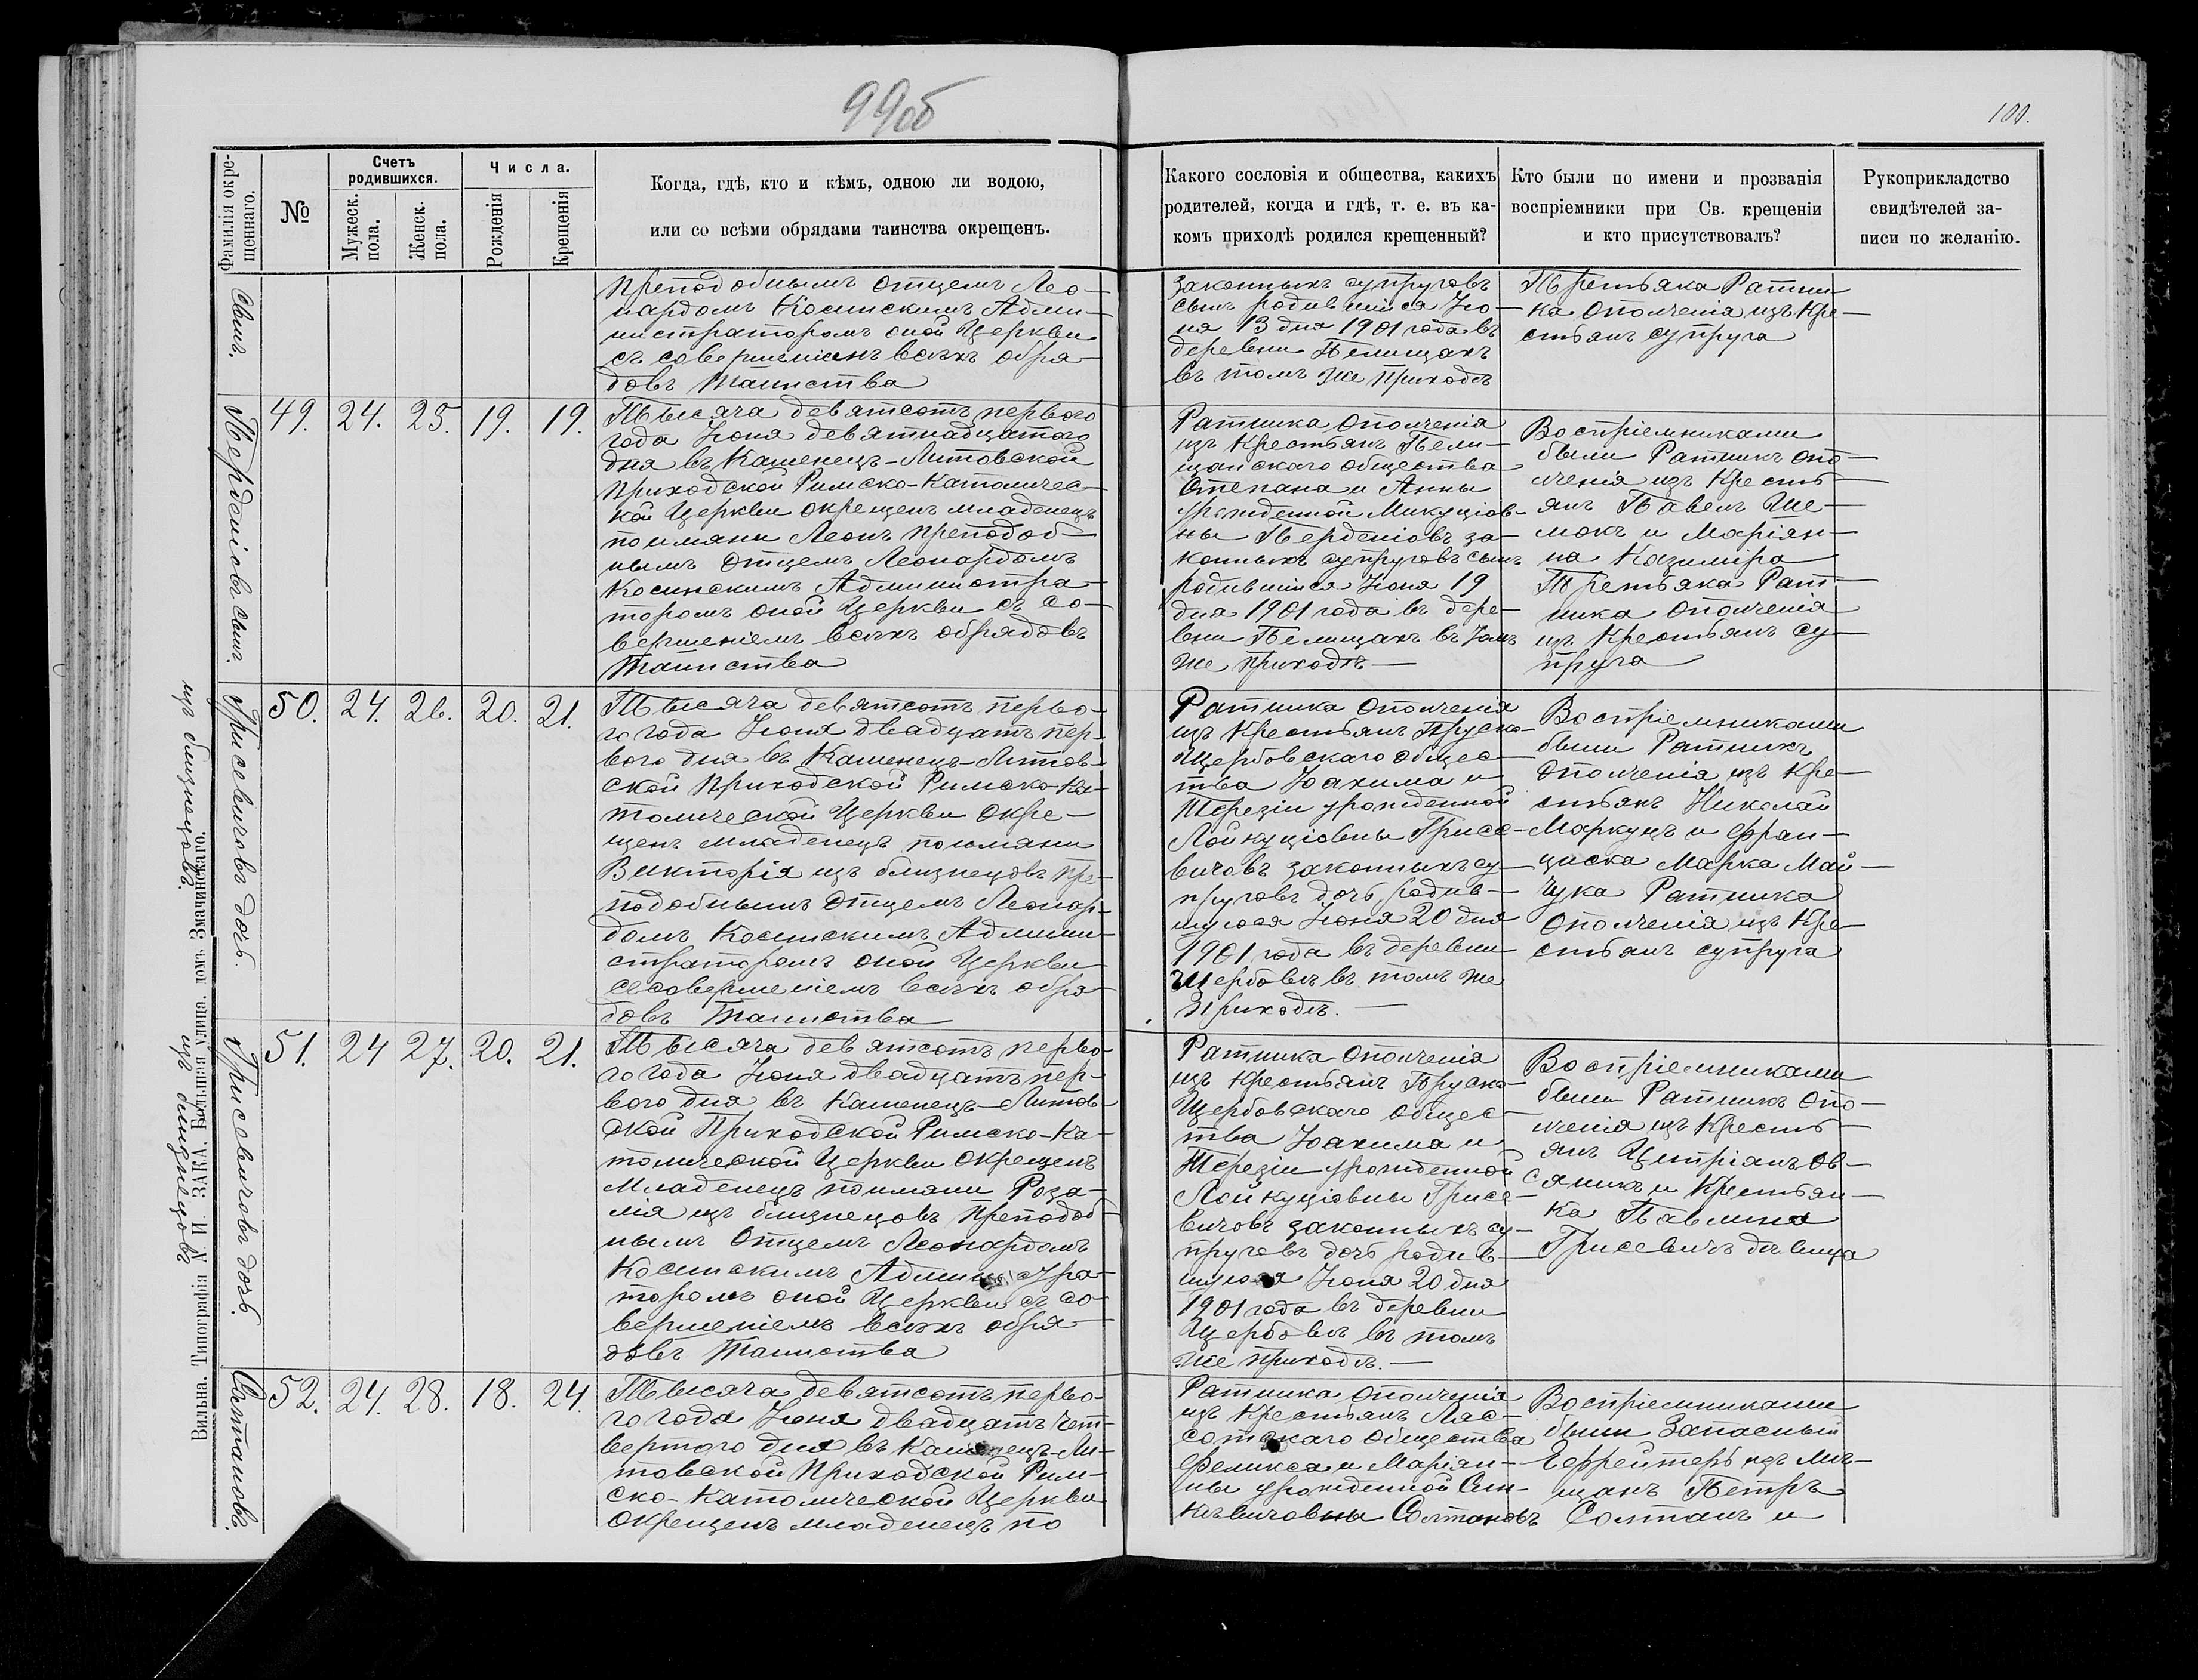 99об
100.
Фамилія окре-
щеннаго.
№
Счетъ
родившихся.
Мужеск.
пола.
Женск.
пола.
Числа.
Рожденія
Крещенія
Когда, гдѣ, кто и кѣмъ, одною ли водою,
или со всѣми обрядами таинства окрещенъ.
Какого сословія и общества, какихъ
родителей, когда и гдѣ, т. е. въ ка-
комъ приходѣ родился крещенный?
Кто были по имени и прозванія
воспріемники при Св. крещеніи
и кто присутствовалъ?
Рукоприкладство
свидѣтелей за-
писи по желанію.
Сынъ.
преподобнымъ отцемъ Лео-
нардомъ Косинскимъ Адми-
нистраторомъ оной Церкви
съ совершеніемъ всѣхъ обря-
довъ Таинства
законныхъ супруговъ
сынъ родившійся Iю-
ня 13 дня 1901 года въ
деревни Пелищахъ
въ томъ же приходѣ
Третьяка Ратни-
ка Ополченія изъ Кре-
стьянъ супруга
Перденіовъ сынъ.
49. 24. 25. 19. 19.
Тысяча девятсотъ первого
года Iюня девятнадцатого
дня въ Каменецъ-Литовской
Приходской Римско-Католичес-
кой Церкви окрещенъ младенецъ
поимяни Леонъ преподоб-
нымъ Отцемъ Леонардомъ
Косинскимъ Администра-
торомъ оной Церкви съ со-
вершеніемъ всѣхъ обрядовъ
Таинства
Ратника Ополченія
изъ Крестьянъ Пели-
щанскаго общества
Степана и Анны
урожденной Микуціов-
ны Перденіовъ за-
конныхъ супруговъ сынъ
родившійся Iюня 19
дня 1901 года въ дере-
вни Пелищахъ въ томъ
же приходѣ —
Воспріемниками
были Ратникъ Опо-
лченія изъ Кресть-
янъ Павелъ Ше-
мокъ и Маріян-
на Казиміра
Третьяка Рат-
ника Ополченія
изъ Крестьянъ су-
пруга
Грисевичовъ дочь.
изъ близнецовъ.
50. 24. 26. 20. 21.
Тысяча девятсотъ перво-
го года Iюня двадцать пер-
вого дня въ Каменецъ-Литов-
ской Приходской Римско-Ка-
толической Церкви окре-
щенъ младенецъ поимяни
Викторія изъ близнецовъ пре-
подобнымъ Отцемъ Леонар-
домъ Косинскимъ Админи-
страторомъ оной Церкви
съ совершеніемъ всѣхъ обря-
довъ Таинства
Ратника Ополченія
изъ Крестьянъ Пруско-
Щербовскаго общес-
тва Iоахима и
Терезіи урожденной
Лойкуціовны Грисе-
вичовъ законныхъ су-
пруговъ дочь родив-
шуюся Iюня 20 дня
1901 года въ деревни
Щербовѣ въ томъ же
Приходѣ. —
Воспріемниками
были Ратникъ
Ополченія изъ Кре-
стьянъ Николай
Маркуцъ и Фран-
циска Марка Май-
чука Ратника
Ополченія изъ Кре-
стьянъ супруга
Грисевичовъ дочь.
изъ близнецовъ
51. 24 27. 20. 21.
Тысяча девятсотъ перво-
го года Iюня двадцать пер-
вого дня въ Каменецъ-Литов-
ской Приходской Римско-Ка-
толической Церкви Окрещенъ
Младенецъ поимяни Роза-
лія изъ близнецовъ преподоб-
нымъ Отцемъ Леонардомъ
Косинскимъ Администра-
торомъ оной Церкви съ со-
вершеніемъ всѣхъ обря-
довъ Таинства
Ратника Ополченія
изъ Крестьянъ Пруско-
Щербовскаго общес-
тва Iоахима и
Терезіи урожденной
Лойкуціовны Грисе-
вичовъ законныхъ су-
пруговъ дочь родив-
шуюся Iюня 20 дня
1901 года въ деревни
Щербовѣ въ томъ
же приходѣ. —
Воспріемниками
были Ратникъ Опо-
лченія изъ Кресть-
янъ Ципріянъ Ов-
сяникъ и Крестьян-
ка Павлина
Грисевичъ дѣвица
Солтановъ.
52. 24. 28. 18. 24.
Тысяча девятсотъ перво-
го года Iюня двадцать чет-
вертого дня въ Каменецъ-Ли-
товской Приходской Рим-
ско-Католической Церкви
окрещенъ младенецъ по
Ратника Ополченія
изъ Крестьянъ Ляс-
сотскаго Общества
Феликса и Маріян-
ны урожденной Син-
кѣвичовны Солтановъ
Воспріемниками
были Запасный
Ефрейтеръ изъ Мѣ-
щанъ Петръ
Солтанъ и
Вильна. Типографія А. И. ЗАКА, Большая улица, домъ Змачинскаго.